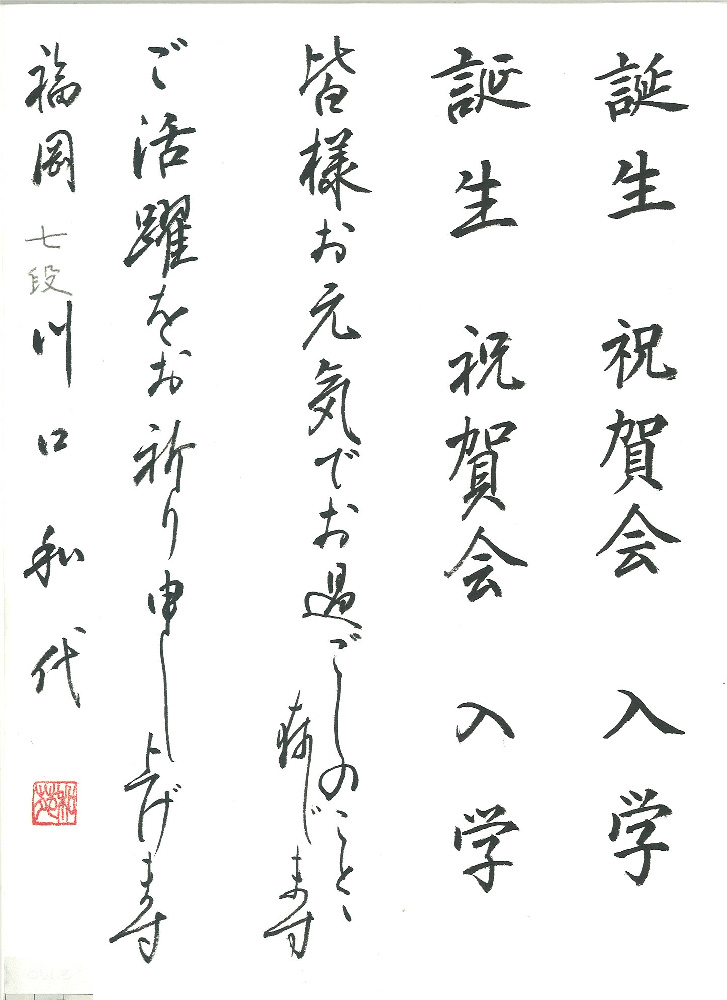 誕生 祝賀会 入学
誕生 祝賀会 入学
皆様お元気でお過ごしのこと、
存じます
ご活躍をお祈り申し上げます
福岡 七段 川口和代